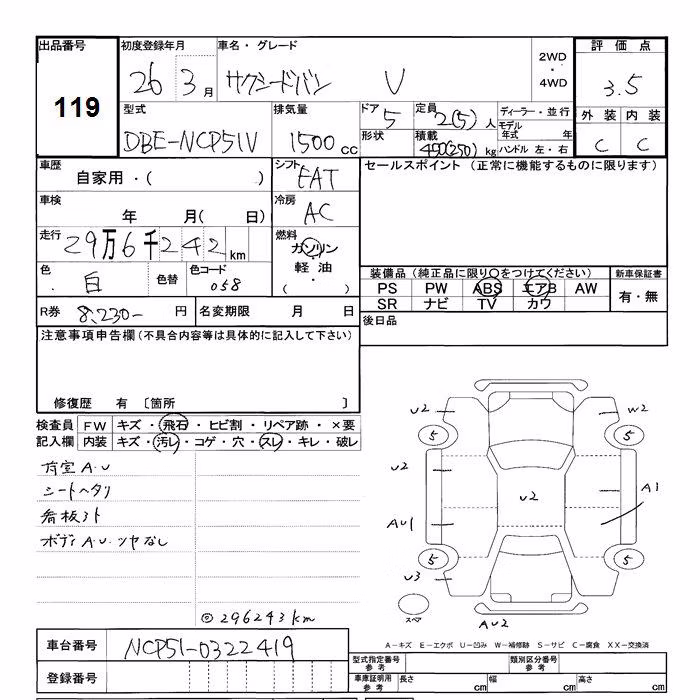 出品番号
119
初度登録年月
26 3月
車名・グレード
サクシードバン V
2WD
・
4WD
評価点
3.5
型式
DBE-NCP51V
排気量
1500cc
ドア
5
形状
定員
2(5)人
積載
450(250)kg
ディーラー・並行
モデル年式 年
ハンドル 左・右
外装 内装
C C
車歴
自家用・( )
シフト
FAT
セールスポイント (正常に機能するものに限ります)
車検
年 月( 日)
冷房
AC
走行
29万6千242km
燃料
ガソリン
・
軽油
・
( )
色
白
色替
色コード
058
装備品 (純正品に限り○をつけてください)
PS PW ABS エアB AW
SR ナビ TV カワ
新車保証書
有・無
R券 8,230- 円
名変期限 月 日
後日品
注意事項申告欄(不具合内容等は具体的に記入して下さい)
修復歴 有 〔箇所 〕
検査員記入欄
FW キズ・飛石・ヒビ割・リペア跡・×要
内装 キズ・汚レ・コゲ・穴・スレ・キレ・破レ
荷室A・U
シートヘタリ
看板跡
ボディA・U・ツヤなし
◎296243km
U2
W2
5
5
U2
U2
A1
AU1
5
5
U3
スペア
AU2
A-キズ E-エクボ U-凹み W-補修跡 S-サビ C-腐食 XX-交換済
車台番号
NCP51-0322419
登録番号
型式指定番号 参考
類別区分番号 参考
車庫証明用 参考
長さ cm
幅 cm
高さ cm